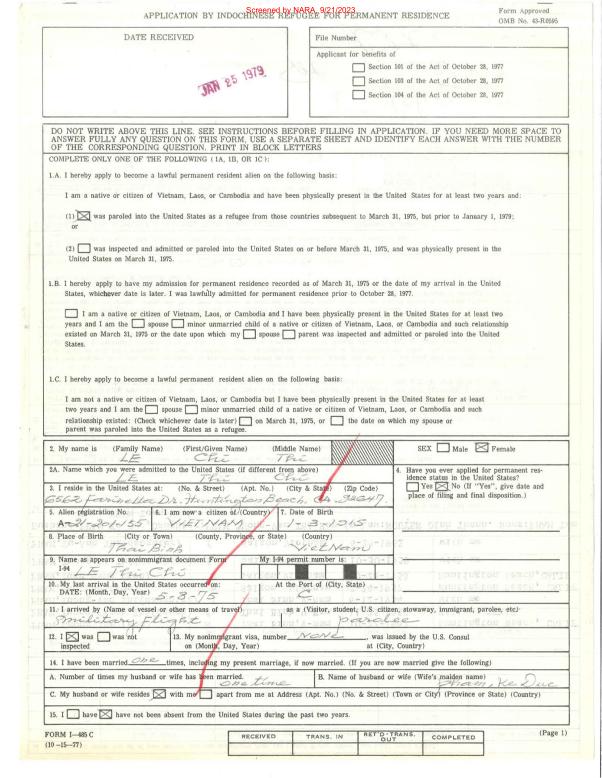 Screened by NARA, 9/21/2023
APPLICATION BY INDOCHINESE REFUGEE FOR PERMANENT RESIDENCE
Form Approved
OMB No. 43-R0595
DATE RECEIVED
JAN 25 1979
File Number
Applicant for benefits of
Section 101 of the Act of October 28, 1977
Section 103 of the Act of October 28, 1977
Section 104 of the Act of October 28, 1977
DO NOT WRITE ABOVE THIS LINE. SEE INSTRUCTIONS BEFORE FILLING IN APPLICATION. IF YOU NEED MORE SPACE TO
ANSWER FULLY ANY QUESTION ON THIS FORM, USE A SEPARATE SHEET AND IDENTIFY EACH ANSWER WITH THE NUMBER
OF THE CORRESPONDING QUESTION. PRINT IN BLOCK LETTERS
COMPLETE ONLY ONE OF THE FOLLOWING (1A, 1B, OR 1C):
1.A. I hereby apply to become a lawful permanent resident alien on the following basis:
I am a native or citizen of Vietnam, Laos, or Cambodia and have been physically present in the United States for at least two years and:
(1) ☒ was paroled into the United States as a refugee from those countries subsequent to March 31, 1975, but prior to January 1, 1979;
or
(2) ☐ was inspected and admitted or paroled into the United States on or before March 31, 1975, and was physically present in the
United States on March 31, 1975.
1.B. I hereby apply to have my admission for permanent residence recorded as of March 31, 1975 or the date of my arrival in the United
States, whichever date is later. I was lawfully admitted for permanent residence prior to October 28, 1977.
☐ I am a native or citizen of Vietnam, Laos, or Cambodia and I have been physically present in the United States for at least two
years and I am the ☐ spouse ☐ minor unmarried child of a native or citizen of Vietnam, Laos, or Cambodia and such relationship
existed on March 31, 1975 or the date upon which my ☐ spouse ☐ parent was inspected and admitted or paroled into the United
States.
1.C. I hereby apply to become a lawful permanent resident alien on the following basis:
I am not a native or citizen of Vietnam, Laos, or Cambodia but I have been physically present in the United States for at least
two years and I am the ☐ spouse ☐ minor unmarried child of a native or citizen of Vietnam, Laos, or Cambodia and such
relationship existed: (Check whichever date is later) ☐ on March 31, 1975, or ☐ the date on which my spouse or
parent was paroled into the United States as a refugee.
2. My name is (Family Name) (First/Given Name) (Middle Name)
LE Chi Thi
SEX ☐ Male ☒ Female
2A. Name which you were admitted to the United States (if different from above)
LE Thi Chi
4. Have you ever applied for permanent res-
idence status in the United States?
☐ Yes ☒ No (If "Yes", give date and
place of filing and final disposition.)
3. I reside in the United States at: (No. & Street) (Apt. No.) (City & State) (Zip Code)
6562 Farinella Dr. Huntington Beach, Ca 92647
5. Alien registration No. 6. I am now a citizen of: (Country) 7. Date of Birth
A-21-201-155 VIETNAM 1-3-1915
8. Place of Birth (City or Town) (County, Province, or State) (Country)
Thai Binh VietNam
9. Name as appears on nonimmigrant document Form My I-94 permit number is:
I-94 LE Thi Chi
10. My last arrival in the United States occurred on: At the Port of (City, State)
DATE: (Month, Day, Year) 5-8-75 C
11. I arrived by (Name of vessel or other means of travel) as a (Visitor, student, U.S. citizen, stowaway, immigrant, parolee, etc)
military Flight parolee
12. I ☒ was ☐ was not 13. My nonimmigrant visa, number NONE, was issued by the U.S. Consul
inspected on (Month, Day, Year) at (City, Country)
14. I have been married one times, including my present marriage, if now married. (If you are now married give the following)
A. Number of times my husband or wife has been married. B. Name of husband or wife (Wife's maiden name)
one time Pham, Ke Duc
C. My husband or wife resides ☒ with me ☐ apart from me at Address (Apt. No.) (No. & Street) (Town or City) (Province or State) (Country)
15. I ☐ have ☒ have not been absent from the United States during the past two years.
FORM I—485 C
(10-15-77)
RECEIVED TRANS. IN RET'D-TRANS. OUT COMPLETED
(Page 1)